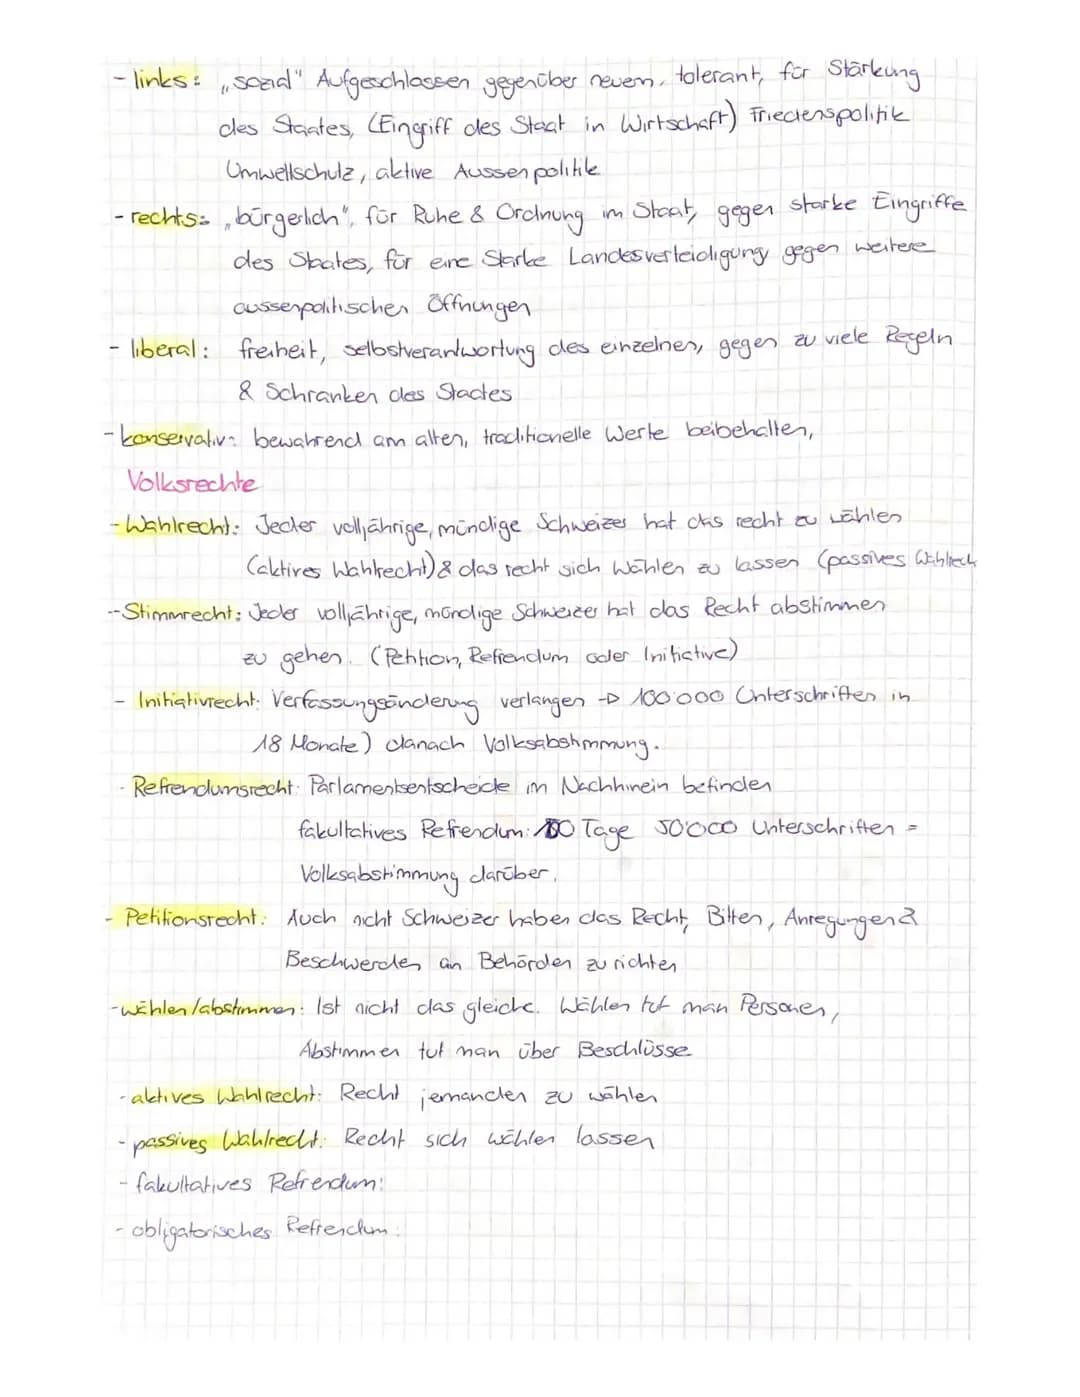 - links: „sozial" Aufgeschlossen gegenüber neuem, tolerant, für Stärkung
des Staates, (Eingriff des Staat in Wirtschaft) Friedenspolitik
Umweltschutz, aktive Aussenpolitik
- rechts: „bürgerlich", für Ruhe & Ordnung im Staat, gegen starke Eingriffe
des Staates, für eine Starke Landesverteidigung gegen weitere
aussenpolitischen Öffnungen
- liberal: freiheit, selbstverantwortung des einzelnen, gegen zu viele Regeln
& Schranken des Staates
- konservativ: bewahrend am alten, traditionelle Werte beibehalten,
Volksrechte
- Wahlrecht: Jeder volljährige, mündige Schweizer hat das recht zu wählen
(aktives Wahlrecht) & das recht sich Wählen zu lassen (passives Wahlrech
- Stimmrecht: Jeder volljährige, mündige Schweizer hat das Recht abstimmen
zu gehen. (Petition, Refrendum oder Initiative)
- Initiativrecht: Verfassungsänderung verlangen → 100'000 Unterschriften in
18 Monate) danach Volksabstimmung.
- Refrendumsrecht: Parlamentsentscheide im Nachhinein befinden
fakultatives Refrendum: 100 Tage 50'000 Unterschriften =
Volksabstimmung darüber.
- Petitionsrecht: Auch nicht Schweizer haben das Recht, Bitten, Anregungen &
Beschwerden an Behörden zu richten
- wählen/abstimmen: Ist nicht das gleiche. Wählen tut man Personen,
Abstimmen tut man über Beschlüsse
- aktives Wahlrecht: Recht jemanden zu wählen
- passives Wahlrecht: Recht sich wählen lassen
- fakultatives Refrendum:
- obligatorisches Refrendum: